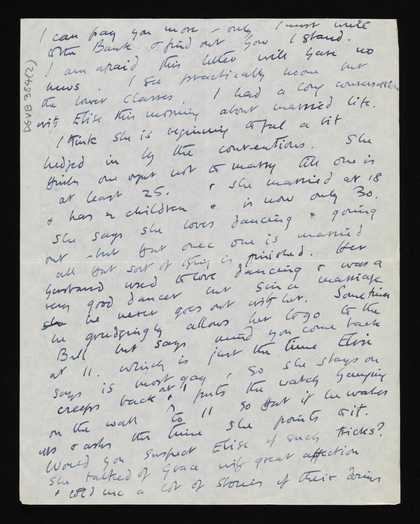 I can pay you more - only I must write
to the Bank & find out how I stand.
I am afraid this letter will have no
news. I see practically none but
the lower classes. I had a long conversation
with Elise this morning about married life.
I think she is beginning to feel a bit
hedged in by the conventions. She
thinks one ought not to marry till one is
at least 25. & she married at 18
& has 2 children & is now only 30.
She says she loves dancing & going
out - but that once one is married
all that sort of thing is finished. Her
husband used to love dancing & was a
very good dancer but since marriage
he never goes out with her. Sometimes
he grudgingly allows her to go to the
Ball but says mind you come back
at 11. which is just the time Elise
says is most gay; so she stays on
creeps back at 1, puts the watch hanging
on the wall to 11 so that if he wakes
up & asks the time she points to it.
Would you suspect Elise of such tricks?
She talked of Grace with great affection
& told me a lot of stories of their doings
DEVB 364(2)